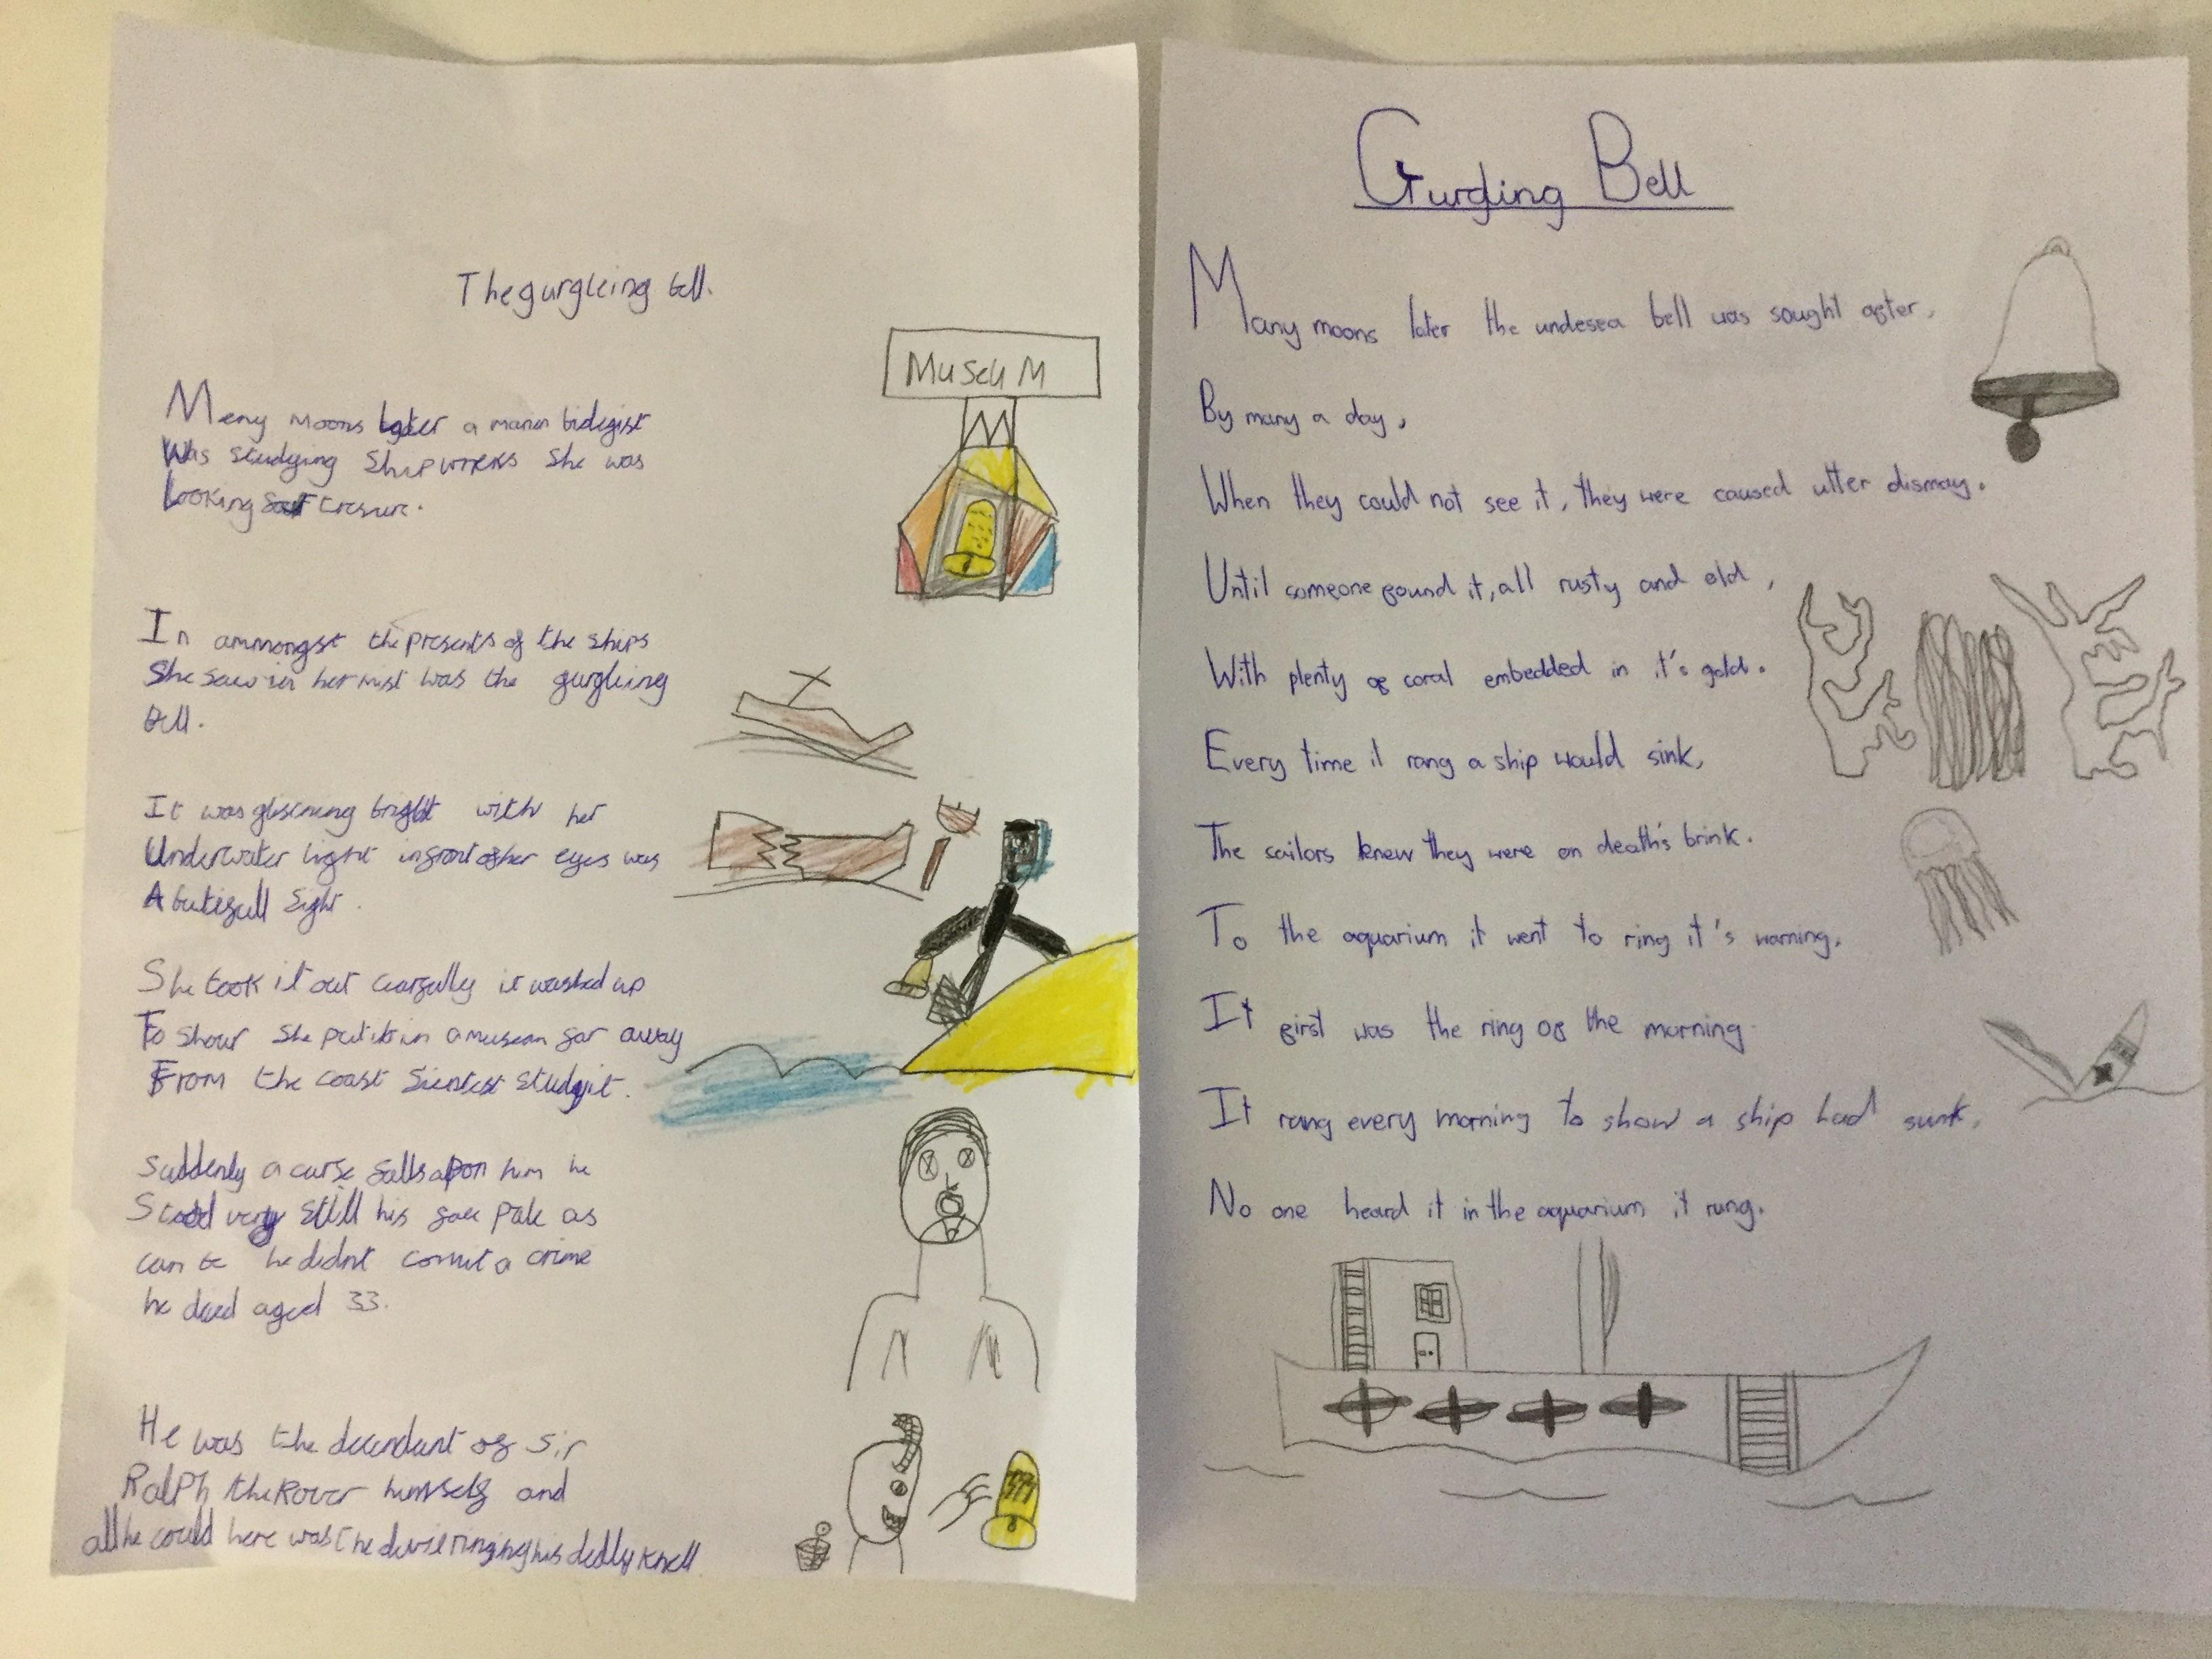 The gurgleing bell.
MuseuM
Meny moons later a maren biolegist
Was studying Shipwreks She was
Looking for tresure.
In ammongst the presents of the ships
She saw in her mist was the gurgleing
Bell.
It was glisening bright with her
Underwater light infront of her eyes was
A butefull Sight.
She took it out cearfully it washed up
To shour She put it in a museam far away
From the coast Sientest Studyit.
Suddenly a curse falls apon him he
Stood very still his face pale as
can be he didnt comit a crime
he died aged 33.
He was the decendant of Sir
Ralph the Rover himself and
all he could here was the devil ringing his dedly knell
Gurgling Bell
Many moons later the undesea bell was sought after,
By many a day,
When they could not see it, they were caused utter dismay.
Until someone found it, all rusty and old,
With plenty of coral embedded in it's gold.
Every time it rang a ship would sink,
The sailors knew they were on death's brink.
To the aquarium it went to ring it's warning,
It first was the ring of the morning.
It rang every morning to show a ship had sunk,
No one heard it in the aquarium it rung.